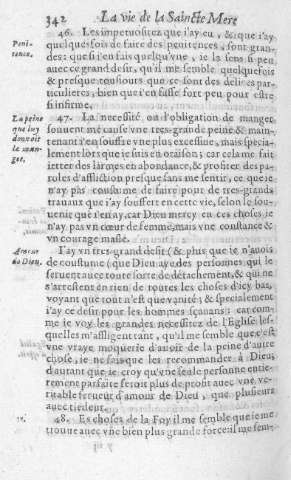 342 La vie de la Saincte Mere
46. Les impetuositez que i'ay eu, & que i'ay
Peni-
tence.
quelquesfois de faire des penitences, sont gran-
des: que si i'en fais quelqu'vne, ie la sens si peu
auec ce grand desir, qu'il me semble quelquefois
& presque tousiours que ce sont des delices par-
ticulieres, bien que i'en fasse fort peu pour estre
si infirme.
La peine
que luy
donnoit
le man-
ger.
47. La necessité ou l'obligation de manger
souuent me cause vne tres-grande peine & main-
tenant i'en souffre vne plus excessiue, mais specia-
lement lors que ie suis en oraison; car cela me fait
ietter des larmes en abondance, & proferer des pa-
roles d'affliction presque sans me sentir, ce que ie
n'ay pas coustume de faire pour de tres-grands
trauaux que i'ay souffert en cette vie, selon le sou-
uenir que i'en ay, car Dieu mercy en ces choses ie
n'ay pas vn cœur de femme, mais vne constance &
vn courage masle.
Amour
de Dieu.
I'ay vn tres-grand desir (& plus que ie n'auois
de coustume) que Dieu ayt des personnes qui le
seruent auec toute sorte de détachement, & qui ne
s'arrestent en rien de toutes les choses d'icy bas,
voyant que tout n'est que vanité; & specialement
i'ay ce desir pour les hommes sçauans: car com-
me ie voy les grandes necessitez de l'Eglise les-
quelles m'affligent tant, qu'il me semble que c'est
vne vraye moquerie d'auoir de la peine d'autre
chose, ie ne fais que les recommander à Dieu,
dautant que ie croy qu'vne seule personne entie-
rement parfaite feroit plus de profit auec vne ve-
ritable ferueur d'amour de Dieu, que plusieurs
auec tiedeur.
48. Es choses de la Foy il me semble que ie me
trouue auec vne bien plus grande force: il me sem-